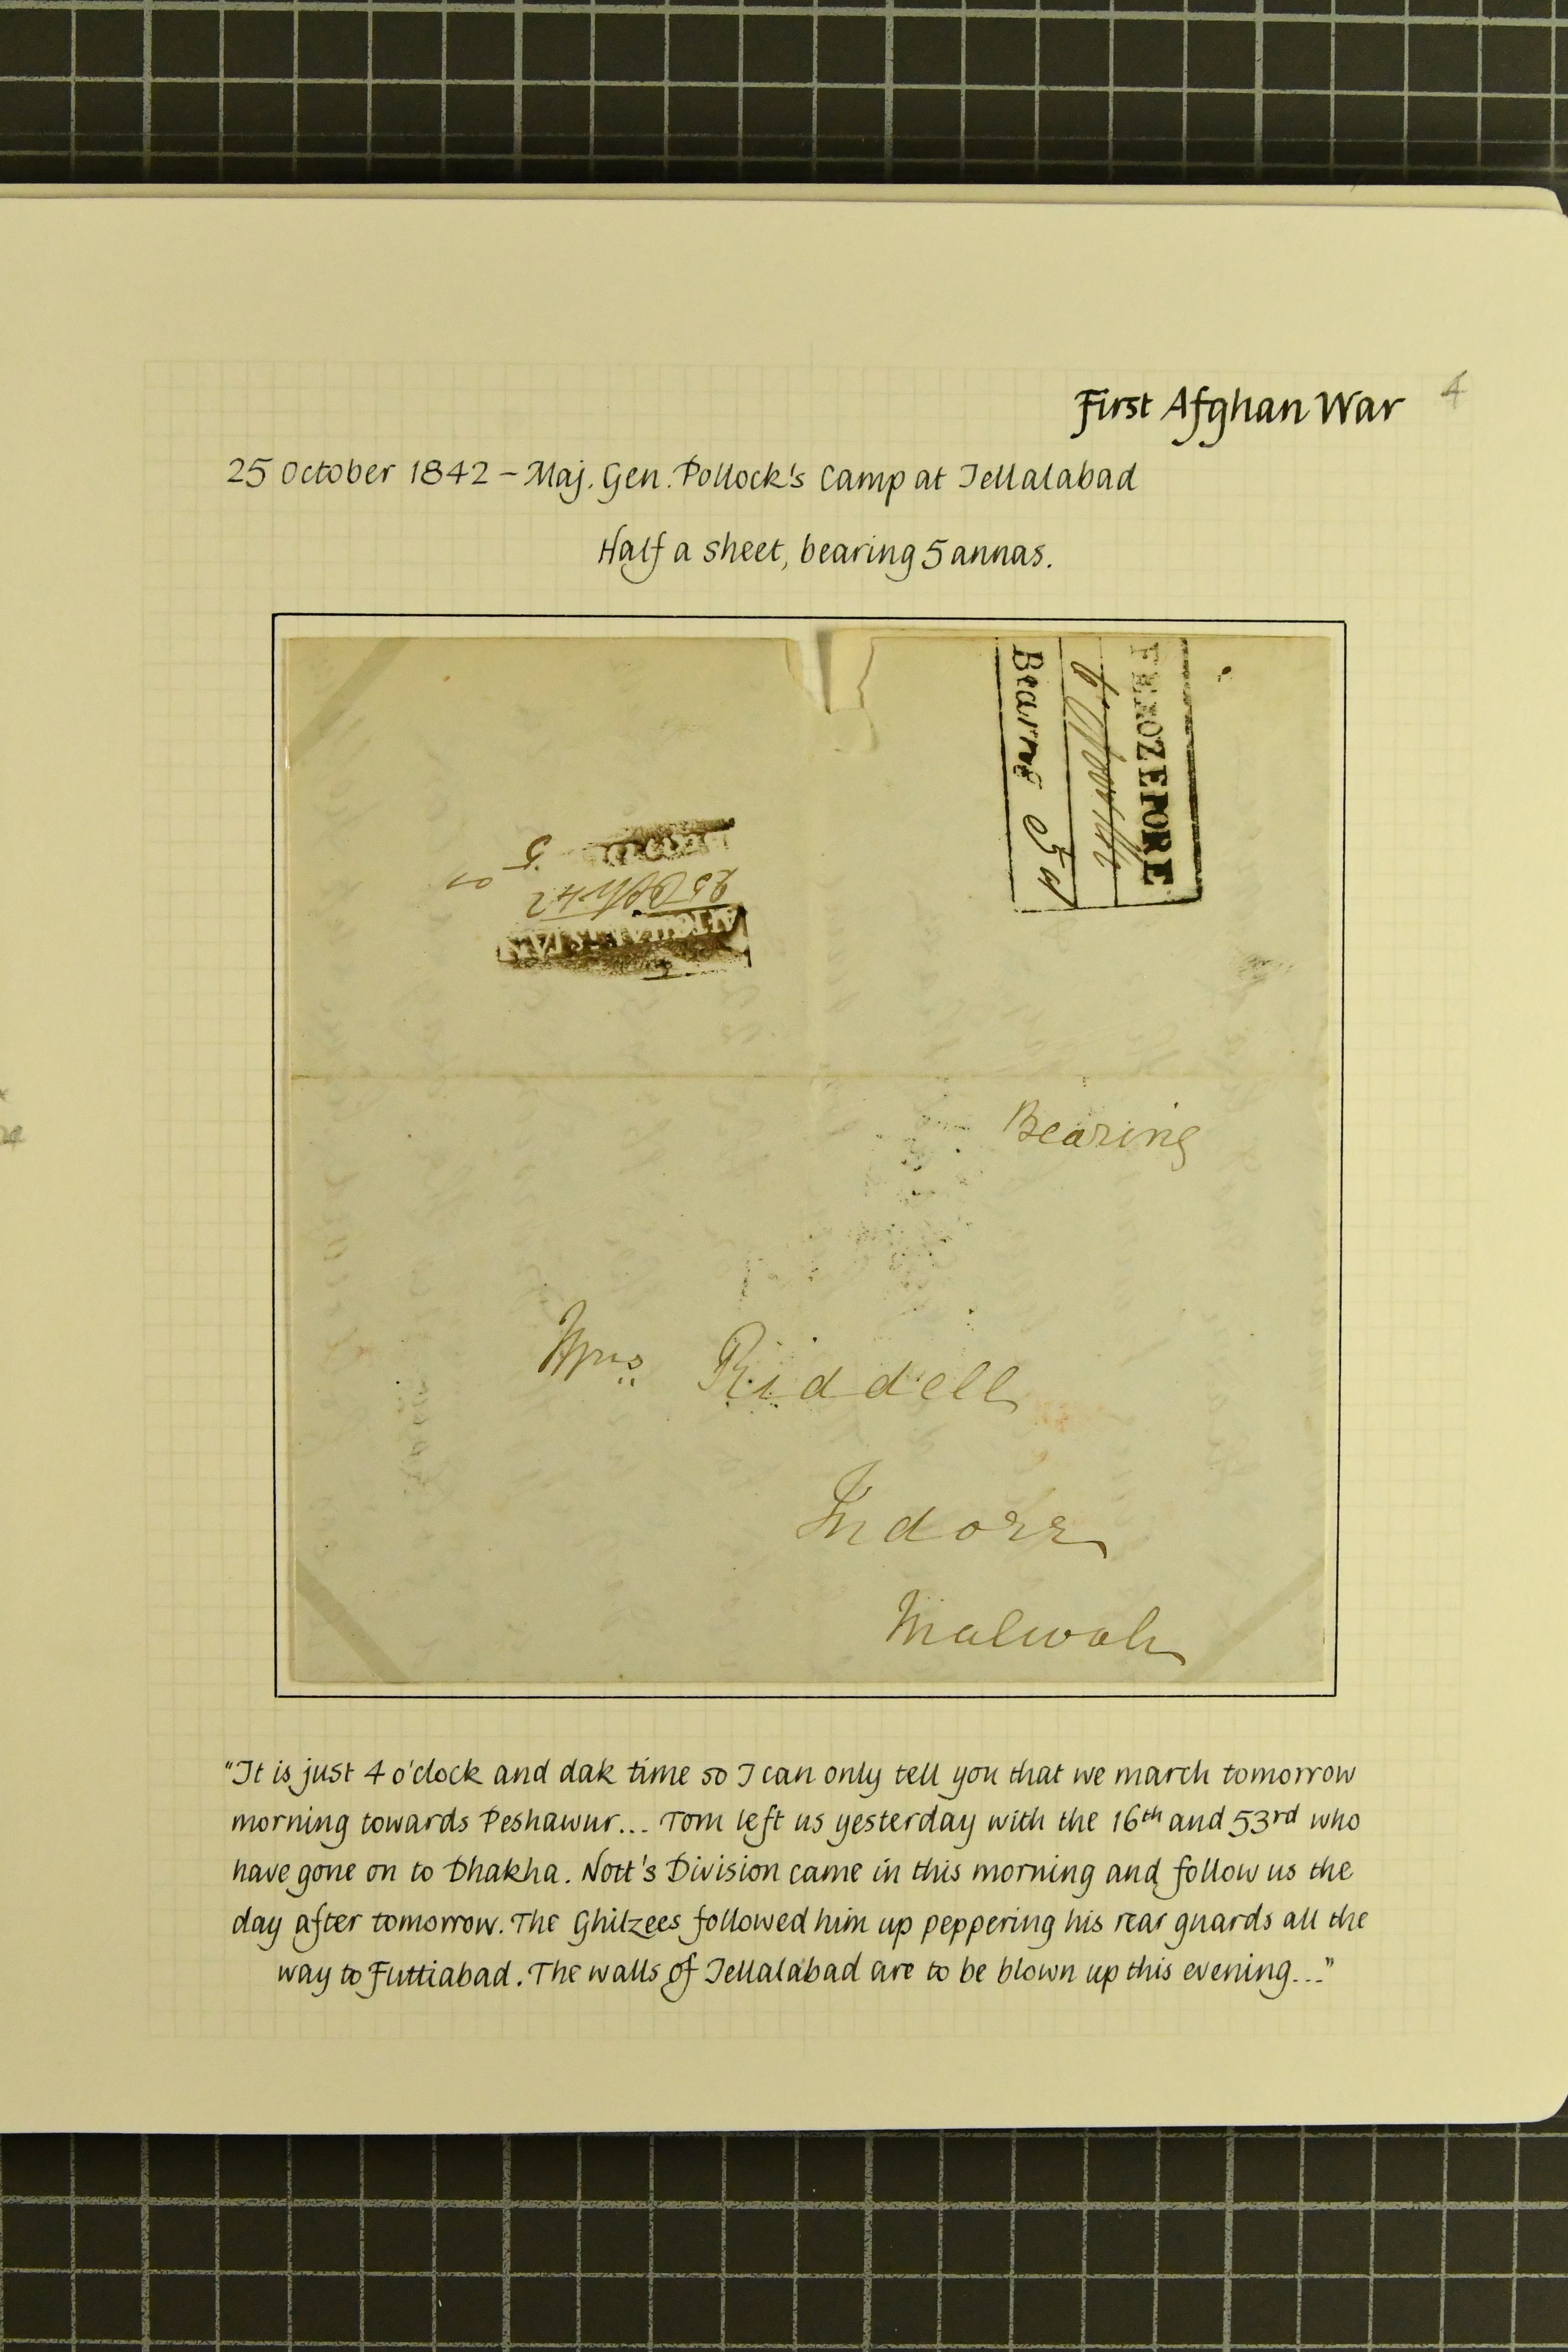 First Afghan War 4
25 October 1842 – Maj. Gen. Pollock's Camp at Jellalabad
Half a sheet, bearing 5 annas.
FEROZEPORE
Bearing 5 a
AFFGHANISTAN
25 Octbr 42
5
Bearing
Mrs Riddell
Indore
Malwah
"It is just 4 o'clock and dak time so I can only tell you that we march tomorrow
morning towards Peshawur... Tom left us yesterday with the 16th and 53rd who
have gone on to Dhakha. Nott's Division came in this morning and follow us the
day after tomorrow. The Ghilzees followed him up peppering his rear guards all the
way to Futtiabad. The walls of Jellalabad are to be blown up this evening..."